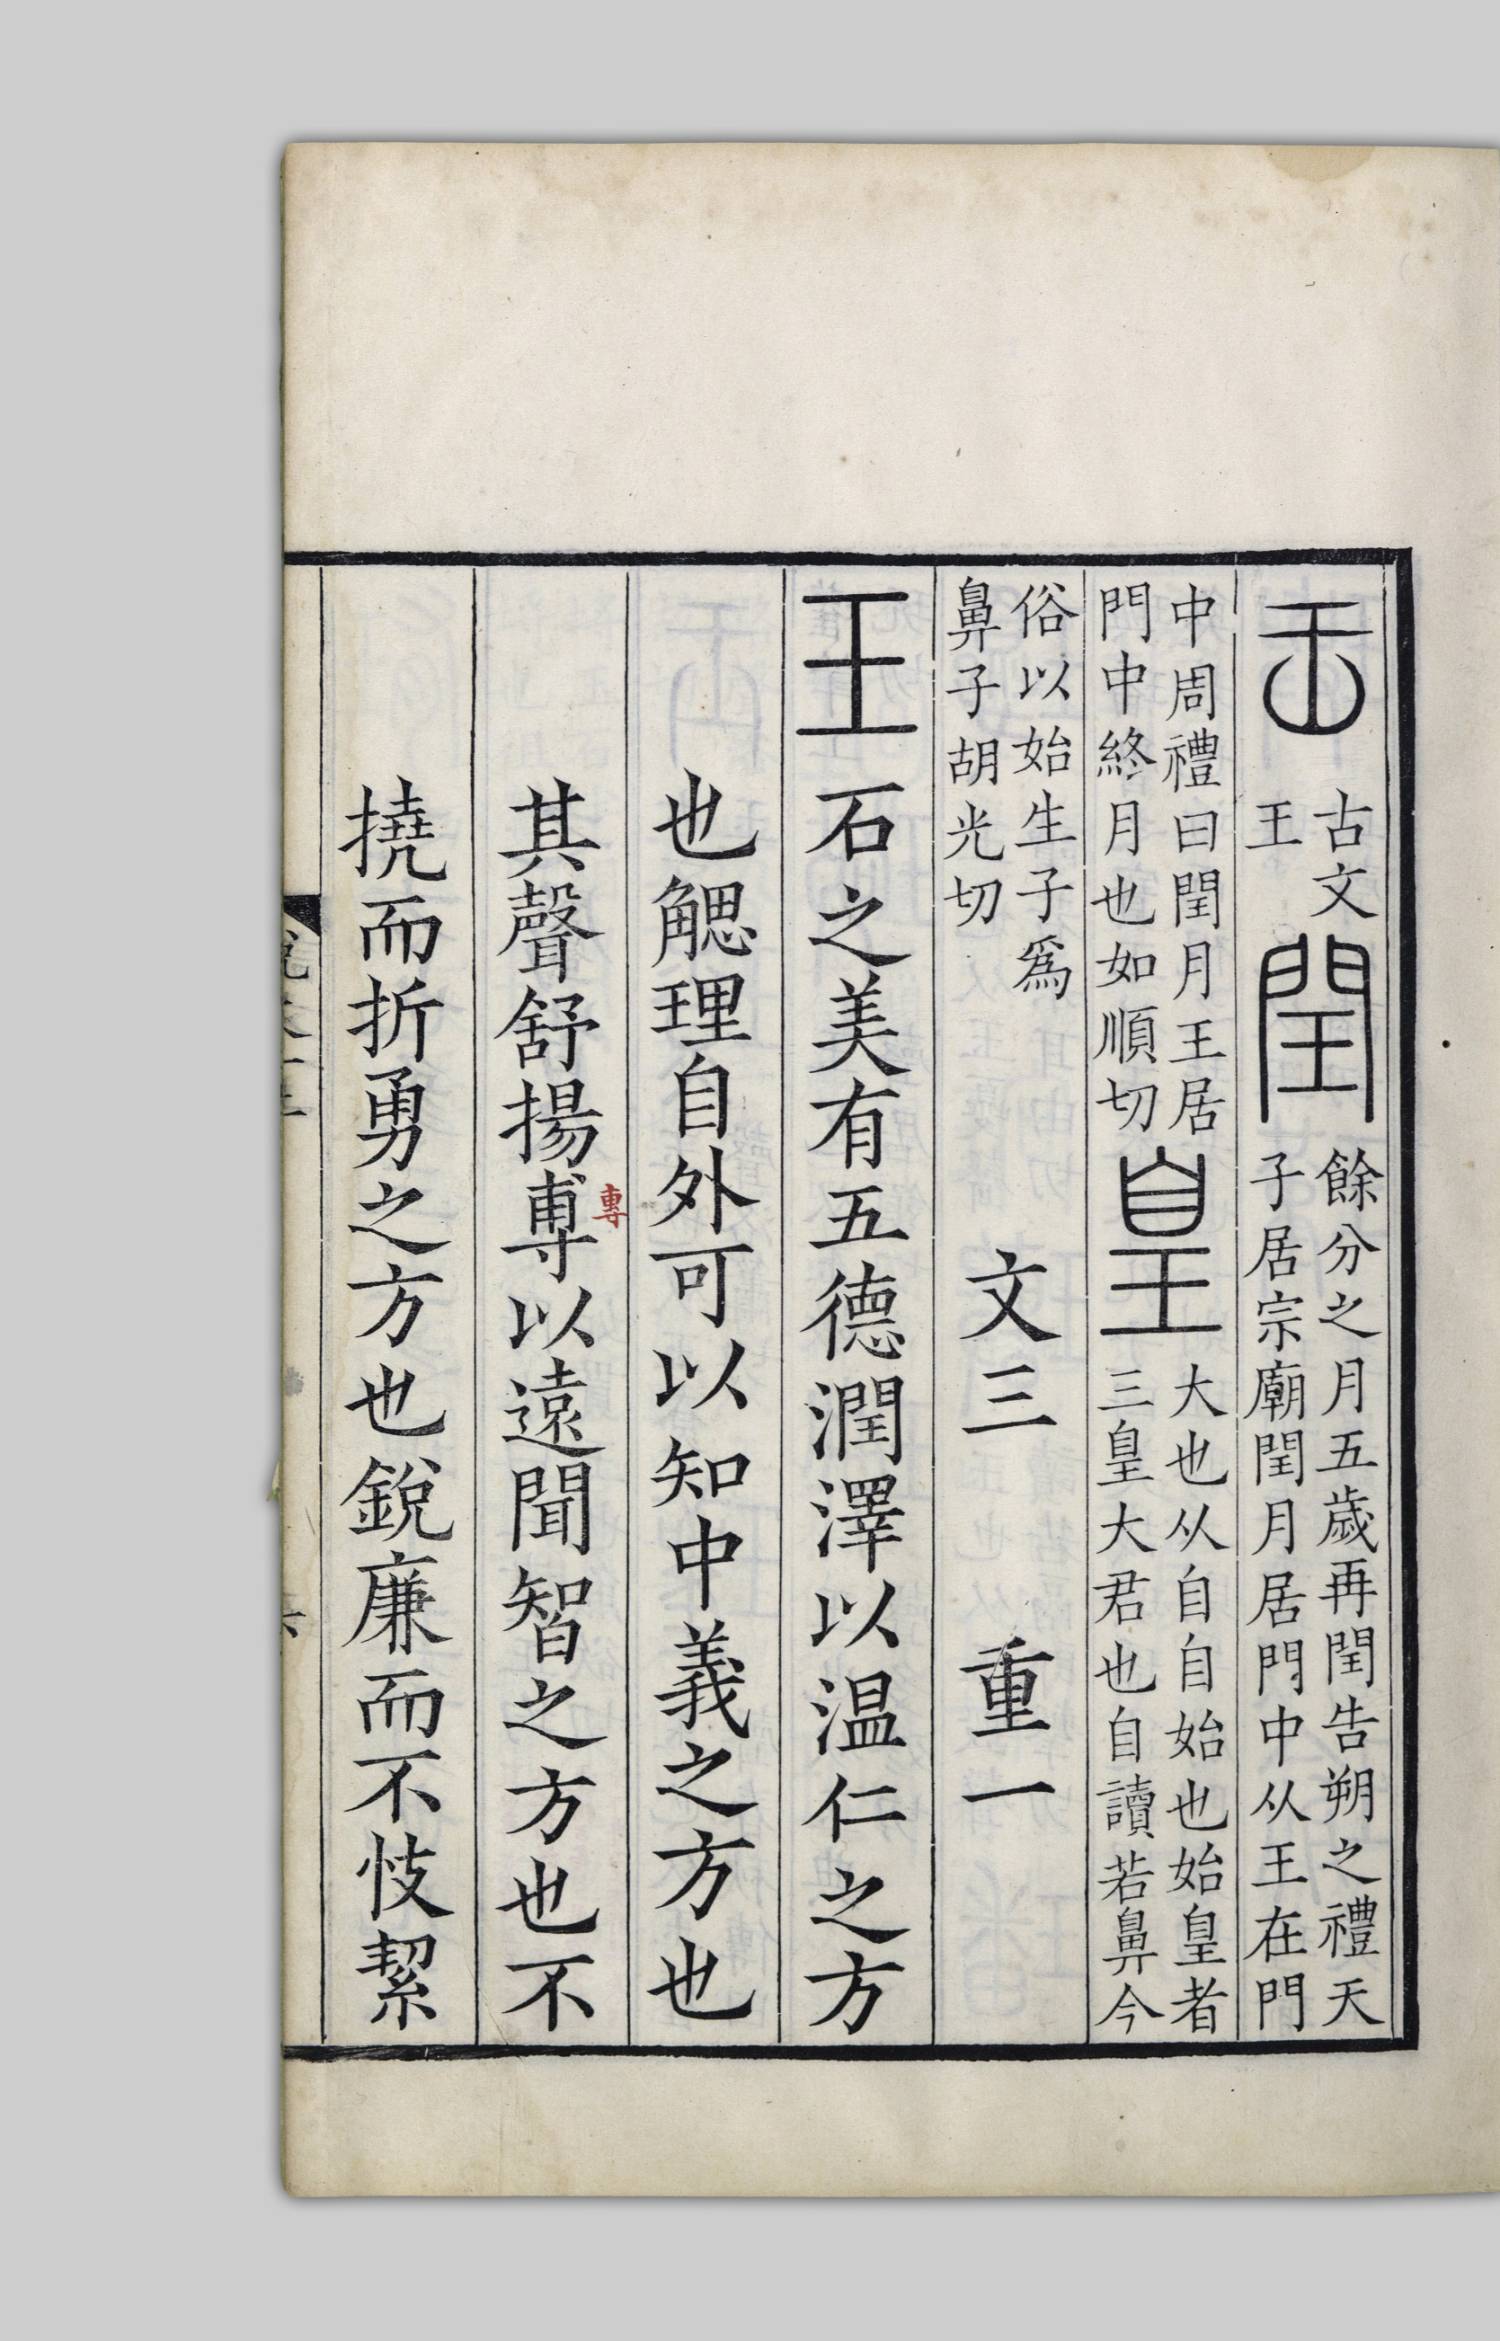 𠙻 古文王 閏 餘分之月五歲再閏告朔之禮天子居宗廟閏月居門中从王在門
中周禮曰閏月王居門中終月也如順切 皇 大也从自自始也始皇者三皇大君也自讀若鼻今
俗以始生子爲鼻子胡光切 文三 重一
王 石之美有五德潤澤以温仁之方
也䚡理自外可以知中義之方也
其聲舒揚尃以遠聞智之方也不
專
撓而折勇之方也銳廉而不忮絜